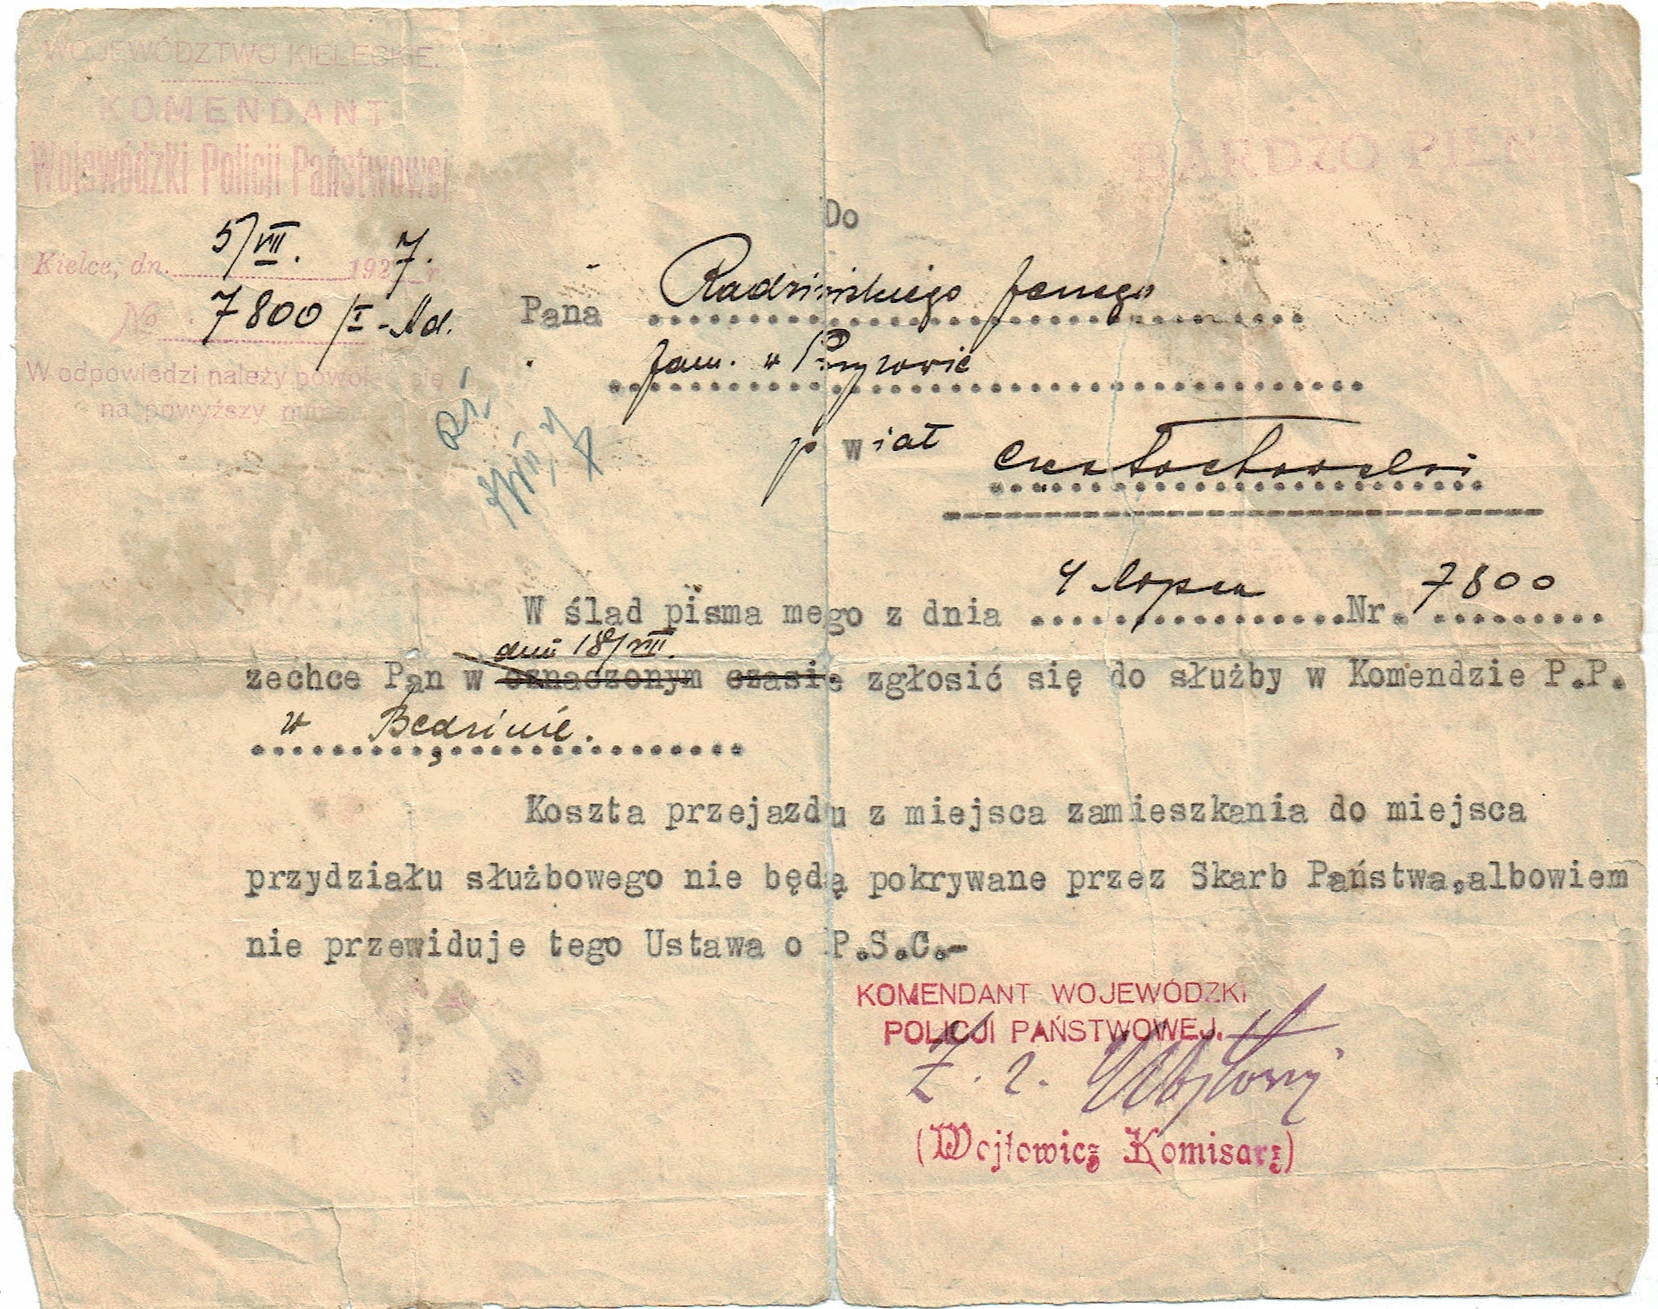 WOJEWÓDZTWO KIELECKIE.
KOMENDANT
Wojewódzki Policji Państwowej
BARDZO PILNE
Kielce, dn. 5/VII. 1927. r.
№ 7800/I-Ad.
W odpowiedzi należy powołać się
na powyższy numer
Do
Pana Radzińskiego Jerzego
zam. w
powiat Częstochowski
W ślad pisma mego z dnia 4 lipca Nr. 7800
dniu 18/VII.
zechce Pan w oznaczonym czasie zgłosić się do służby w Komendzie P.P.
w Będzinie.
Koszta przejazdu z miejsca zamieszkania do miejsca
przydziału służbowego nie będą pokrywane przez Skarb Państwa,albowiem
nie przewiduje tego Ustawa o P.S.C.-
KOMENDANT WOJEWÓDZKI
POLICJI PAŃSTWOWEJ.
(Wojtowicz Komisarz)